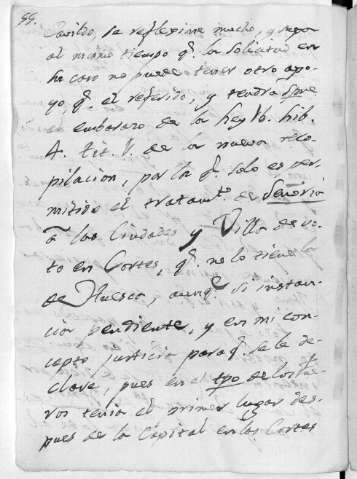 99.
Cavildo, se reflexione mucho, y supon
al mismo tiempo q.e la solicitud en
su caso no puede tener otro apo-
yo q.e el referido, y tendrá spre
el embarazo de la Ley 16. Lib.
4. tit. 1. de la nueva reco-
pilacion, por la q.e solo es per-
mitido el tratam.to de Señoria
a las Ciudades y Villa de vo-
to en Cortes, q.e no lo tiene la
de Huesca, aunq.e sí instan-
cia pendiente, y en mi con-
cepto justicia para q.e se le de-
clare, pues en el tpo de los Fue-
ros tenia el primer lugar des-
pues de la Capital en las Cortes